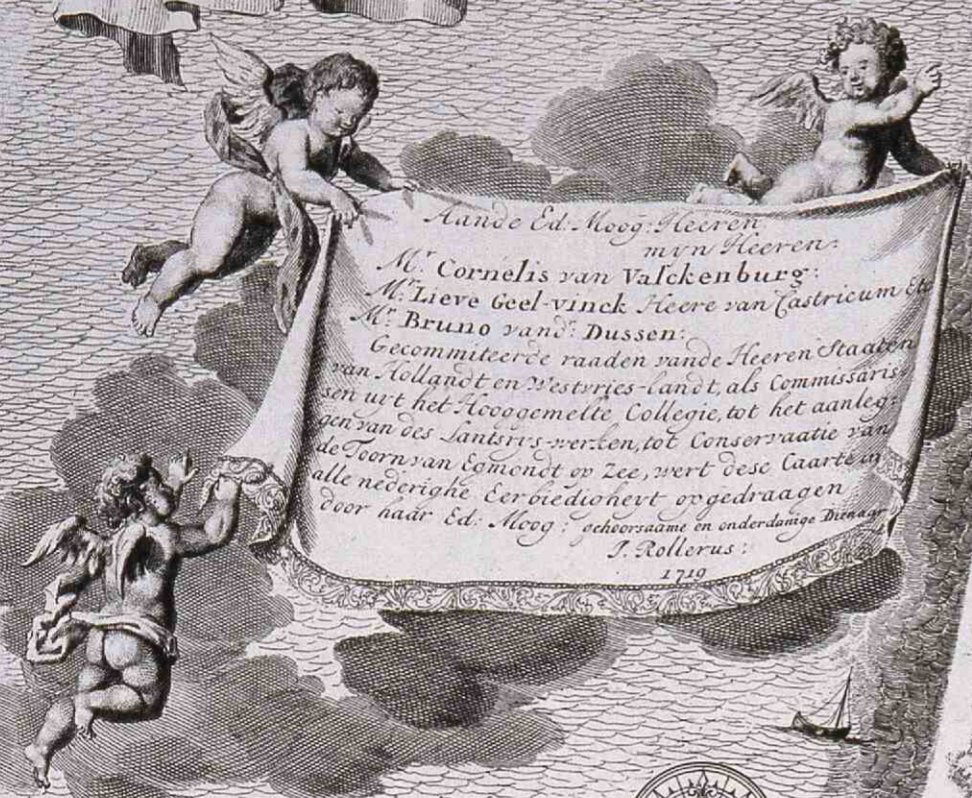 Aande Ed: Moog: Heeren
myn Heeren:
Mr. Cornelis van Valckenburg:
Mr. Lieve Geel-vinck Heere van Castricum Etc
Mr. Bruno vandr. Dussen:
Gecommiteerde raaden vande Heeren Staaten
van Hollandt en Westvries-landt, als Commissaris-
sen uyt het Hooggemelte Collegie, tot het aanleg-
gen van des Lantsrys-werken, tot Conservaatie van
de Toorn van Egmondt op Zee, wert dese Caarte in
alle nederighe Eerbiedigheyt opgedraagen
door haar Ed: Moog: gehoorsaame en onderdanige Dienaar
J. Rollerus:
1719